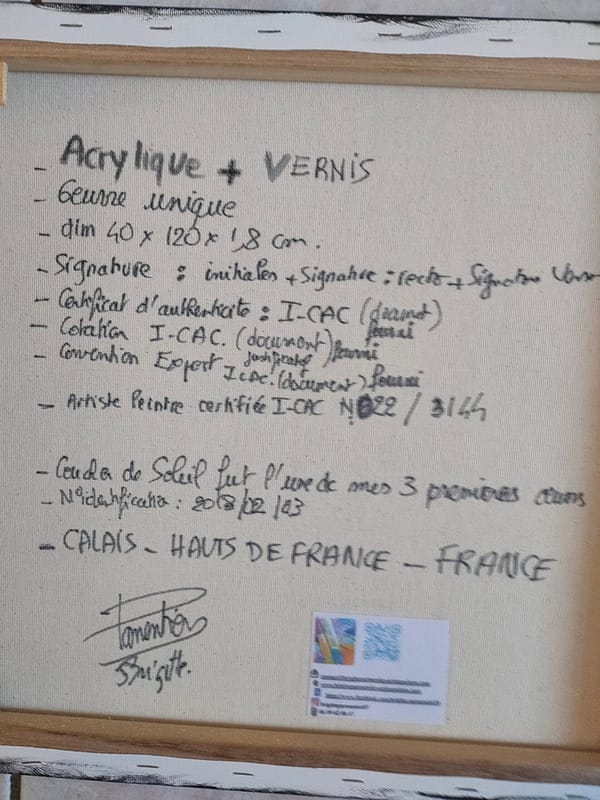 - Acrylique + VERNIS
- Oeuvre unique
- dim 40 x 120 x 1,8 cm.
- Signature : initiales + Signature : recto + Signature Verso
- Certificat d'authenticité : I-CAC (document) fourni
- Cotation I-CAC. (document) fourni
- Convention Expert justificatif I CAC. (document) fourni
- Artiste Peintre certifiée I-CAC N°22 / 3144
- Couché de Soleil fut l'une de mes 3 premières œuvres
- N° identification : 2018/02/03
- CALAIS - HAUTS DE FRANCE - FRANCE
Parenthier
Brigitte.